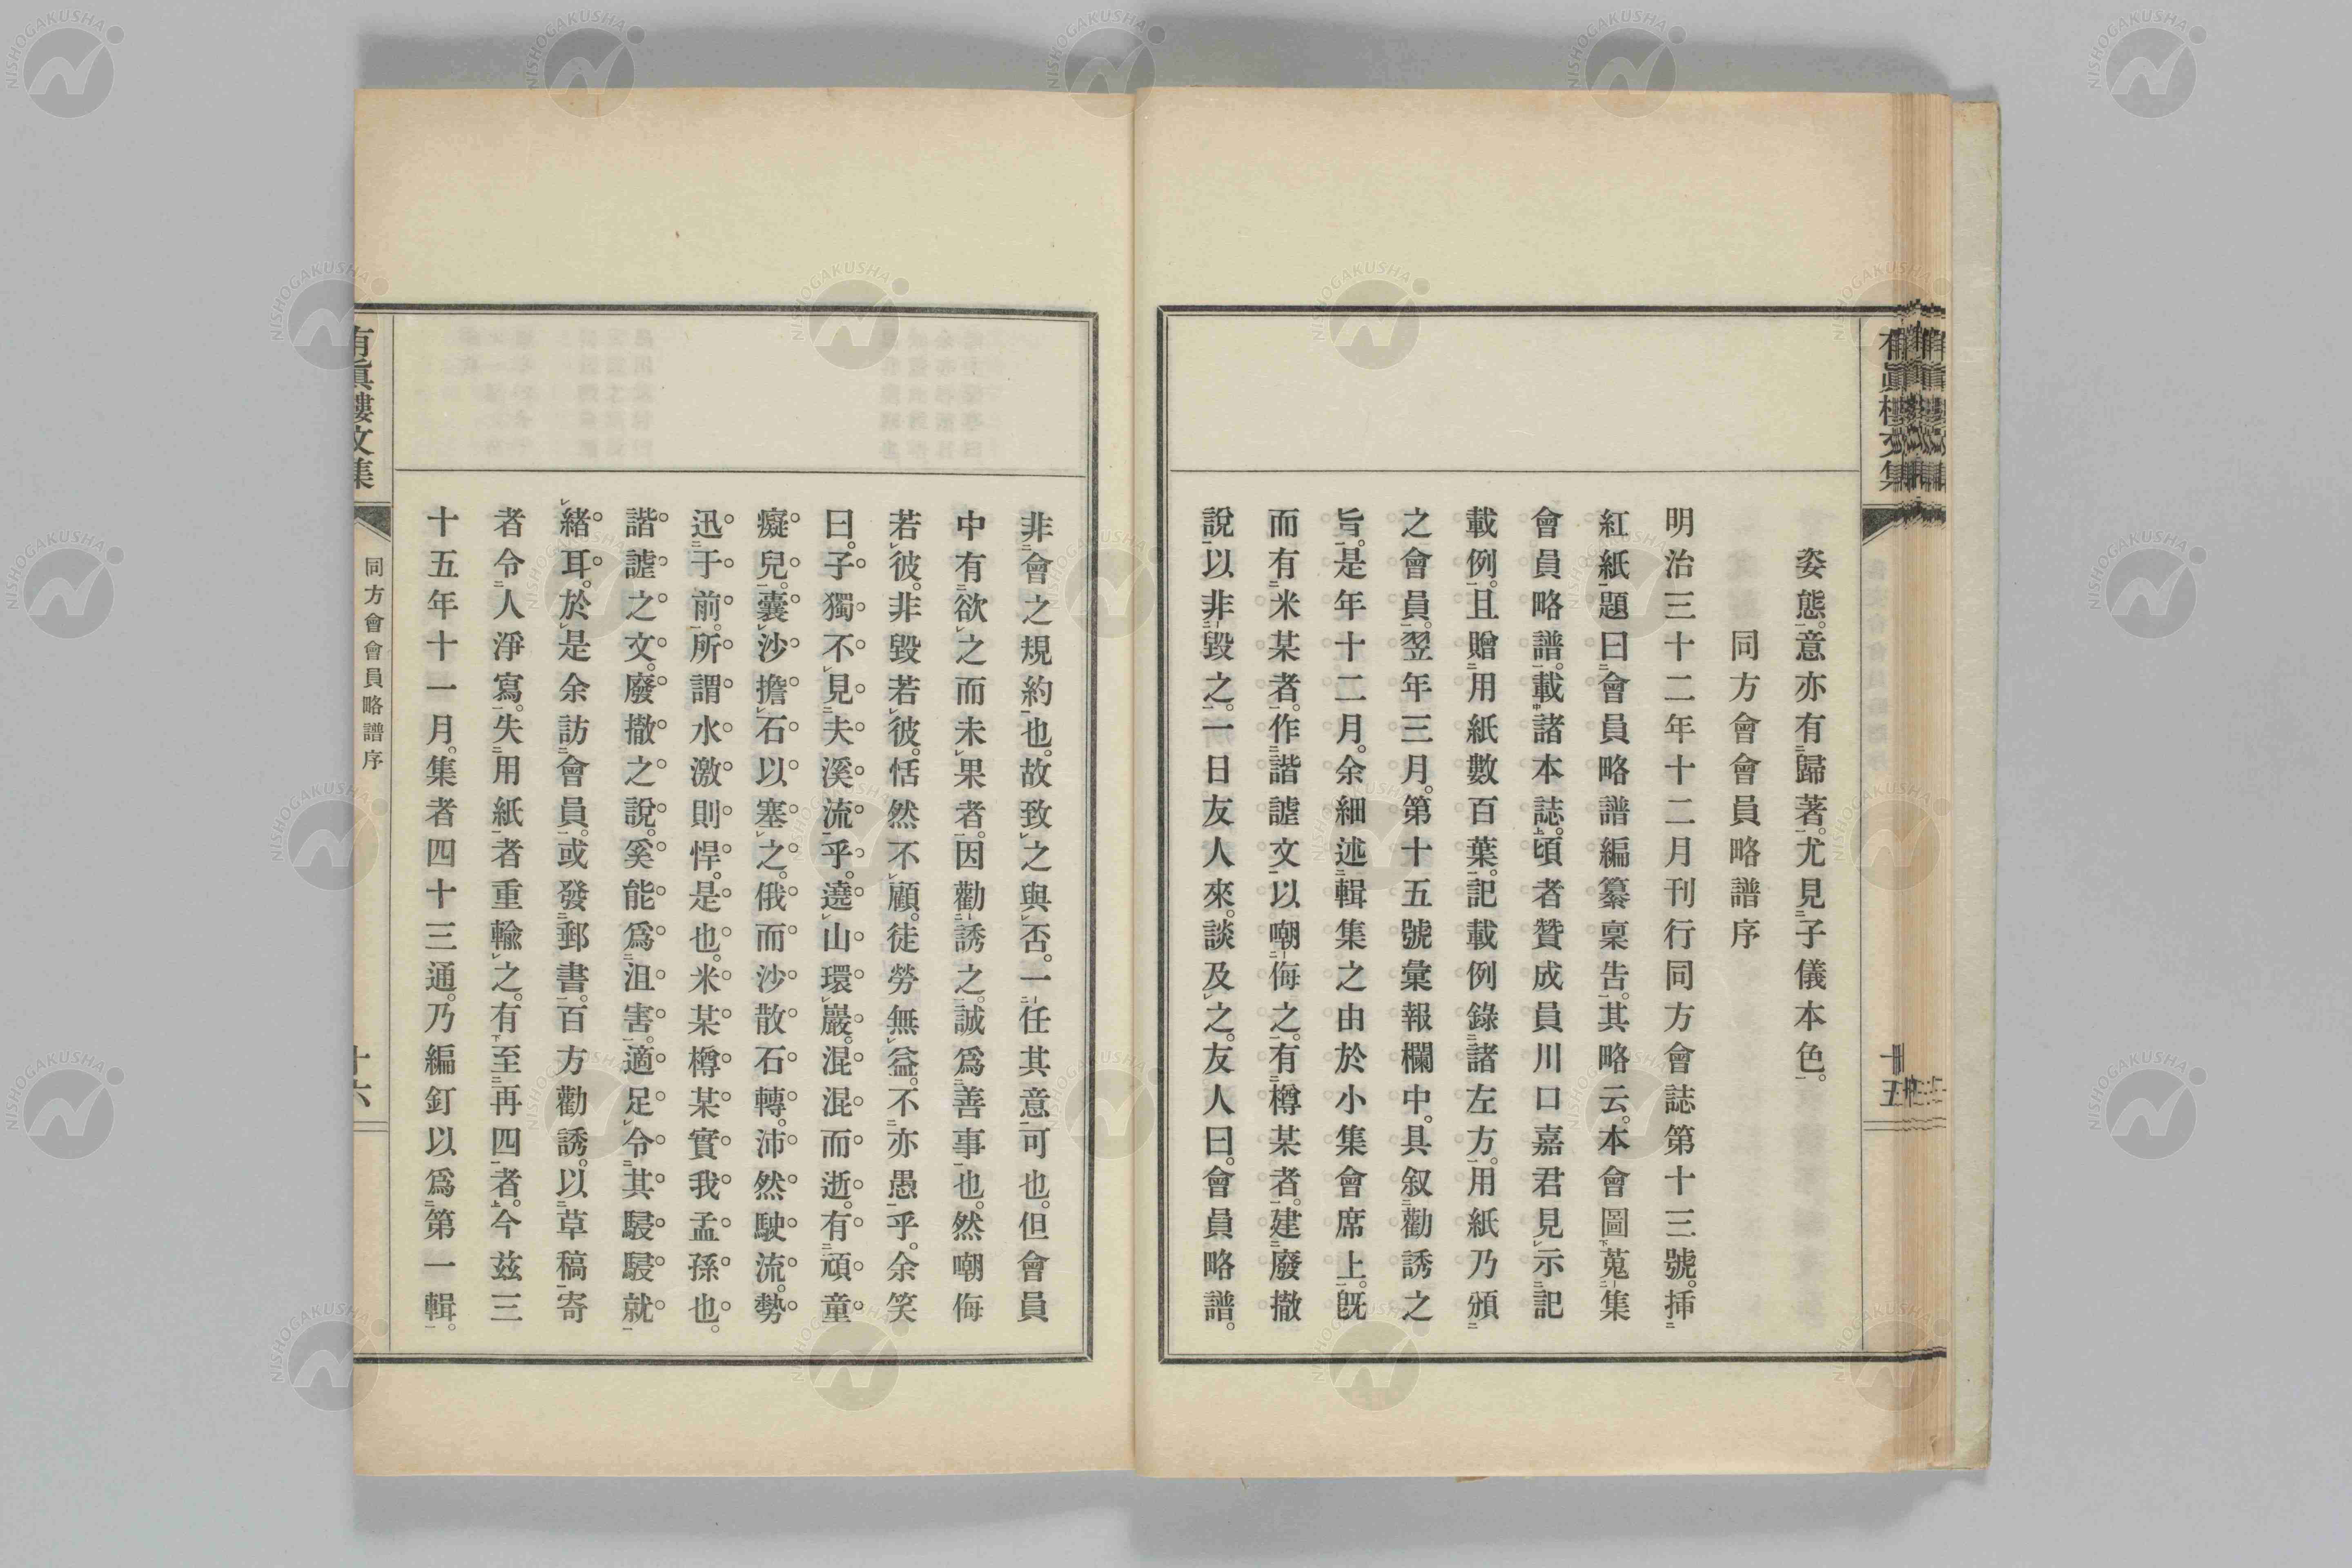 姿態。意亦有歸著。尤見子儀本色。
同方會會員略譜序
明治三十二年十二月刊行同方會誌第十三號。挿
紅紙題曰會員略譜編纂稟告。其略云。本會圖蒐集
會員略譜。載諸本誌。頃者贊成員川口嘉君見示記
載例。且贈用紙數百葉。記載例錄諸左方。用紙乃頒
之會員。翌年三月。第十五號彙報欄中。具叙勸誘之
旨。是年十二月。余細述輯集之由於小集會席上。旣
而有米某者。作諧謔文以嘲侮之。有樽某者。建廢撤
說以非毀之。一日友人來。談及之。友人曰。會員略譜。
十五
非會之規約也。故致之與否。一任其意可也。但會員
中有欲之而未果者。因勸誘之。誠爲善事也。然嘲侮
若彼。非毀若彼。恬然不顧。徒勞無益。不亦愚乎。余笑
曰。子獨不見夫溪流乎。遶山環巖。混混而逝。有頑童
癡兒。囊沙擔石以塞之。俄而沙散石轉。沛然駛流。勢
迅于前。所謂水激則悍。是也。米某樽某實我孟孫也。
諧謔之文。廢撤之說。奚能爲沮害。適足令其駸駸就
緒耳。於是余訪會員。或發郵書。百方勸誘。以草稿寄
者令人淨寫。失用紙者重輸之。有至再四者。今玆三
十五年十一月。集者四十三通。乃編釘以爲第一輯。
有眞樓文集
同方會會員略譜序
十六
NISHOGAKUSHA